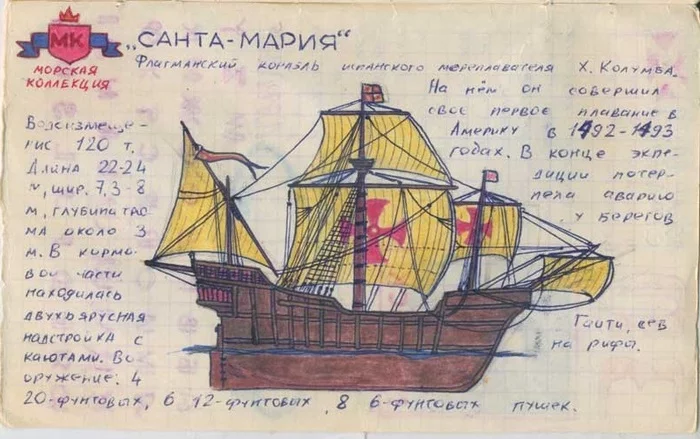 МК
МОРСКАЯ
КОЛЛЕКЦИЯ
„САНТА-МАРИЯ“
Флагманский корабль испанского мореплавателя Х. Колумба.
На нём он совершил
свое первое плавание в
Америку в 1492-1493
годах. В конце экпе-
диции потер-
пела аварию
у берегов
Гаити, сев
на рифы.
Водоизмеще-
ние 120 т.
Длина 22-24
м, шир. 7,3-8
м, глубина трю
ма около 3
м. В кормо-
вой части
находилась
двухъярусная
надстройка с
каютами. Во
оружение: 4
20-фунтовых, 6 12-фунтовых, 8 6-фунтовых пушек.